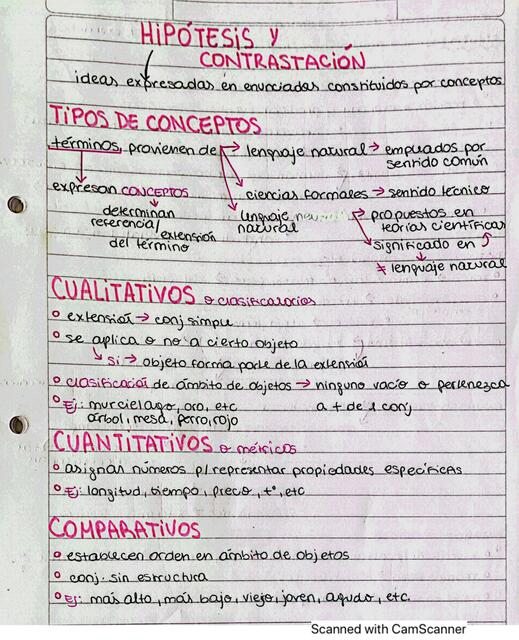 HIPÓTESIS Y
CONTRASTACIÓN
ideas expresadas en enunciados constituidos por conceptos
TIPOS DE CONCEPTOS
términos, provienen de → lenguaje natural → empleados por
sentido común
expresan CONCEPTOS
ciencias formales → sentido técnico
determinan
referencia/extensión
del término
lenguaje
natural
→ propuestos en
teorías científicas
significado en
≠ lenguaje natural
CUALITATIVOS o clasificatorios
extensión → conj simple
se aplica o no a cierto objeto
si → objeto forma parte de la extensión
clasificación de ámbito de objetos → ninguno vacío o pertenezca
a + de 1 conj
Ej: murcielago, oro, etc
arbol, mesa, perro, rojo
CUANTITATIVOS o métricos
asignan números p/ representar propiedades específicas
Ej: longitud, tiempo, precio, t°, etc
COMPARATIVOS
establecen orden en ámbito de objetos
conj. sin estructura
ej: más alto, más bajo, viejo, joven, agudo, etc.
Scanned with CamScanner